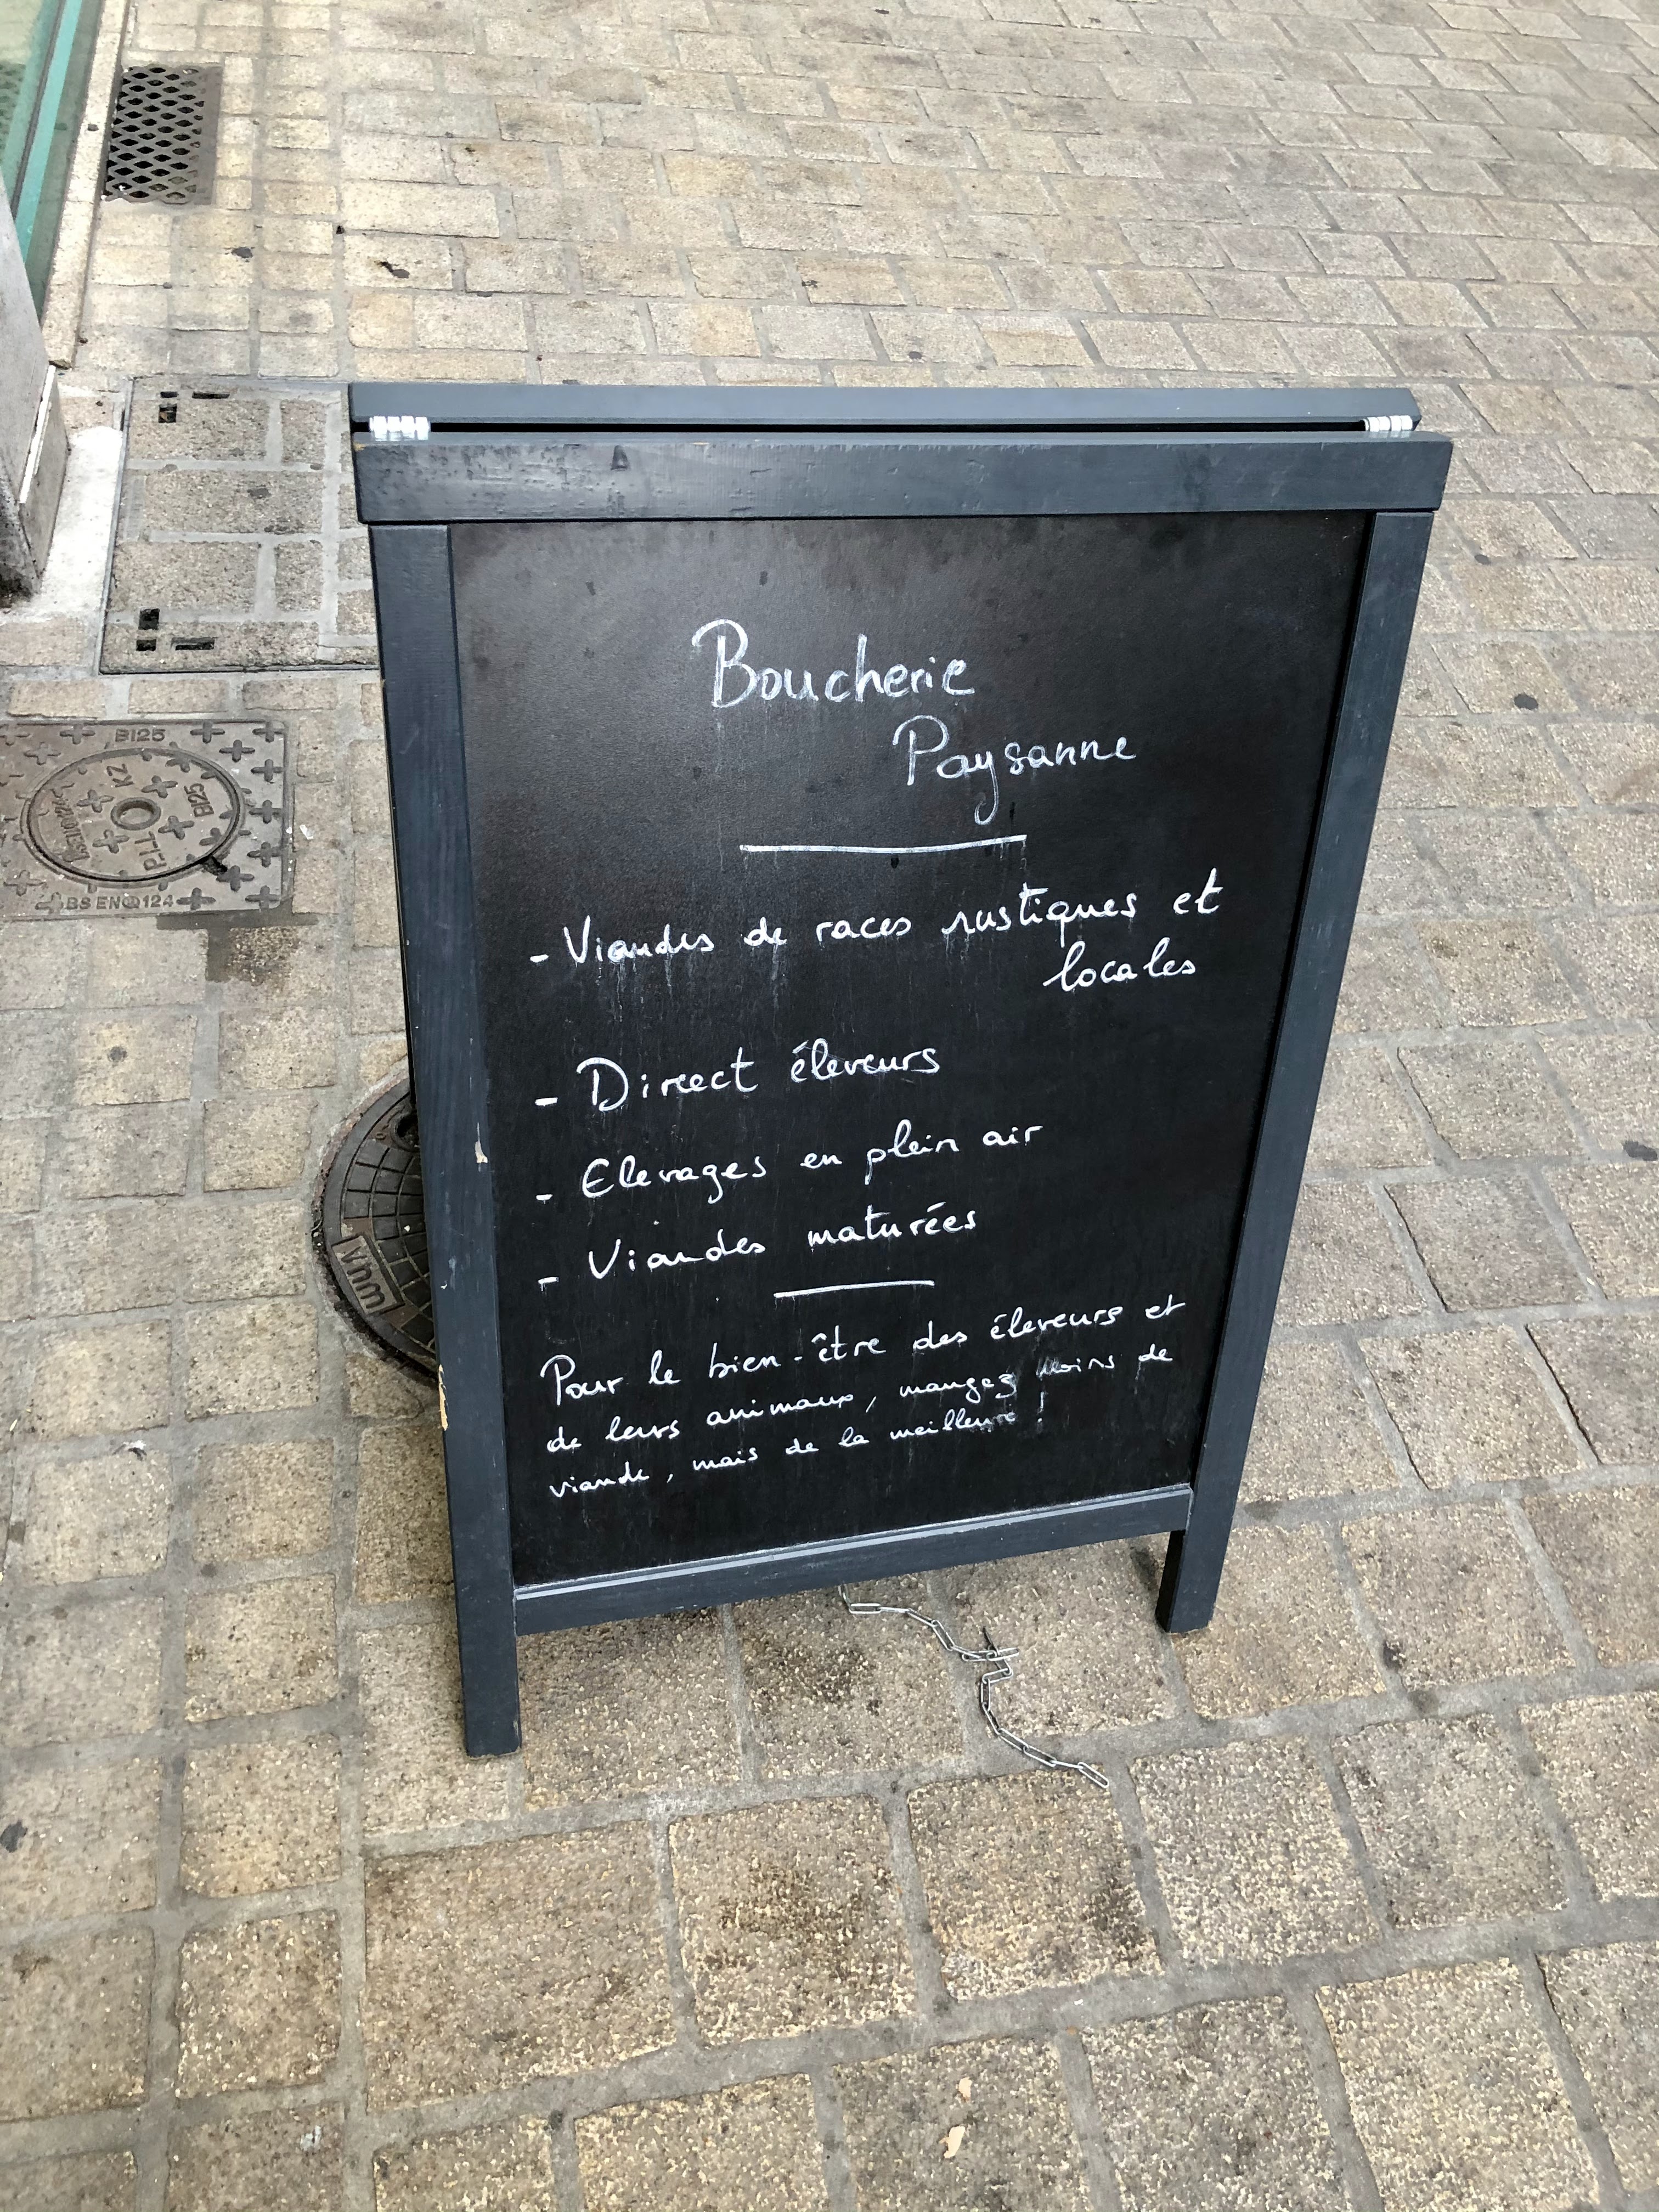 Boucherie
Paysanne
- Viandes de races rustiques et
locales
- Direct éleveurs
- Elevages en plein air
- Viandes maturées
Pour le bien-être des éleveurs et
de leurs animaux, mangez moins de
viande, mais de la meilleure !
BI25
KZ
BI25
PILL
BS EN 124
vnm